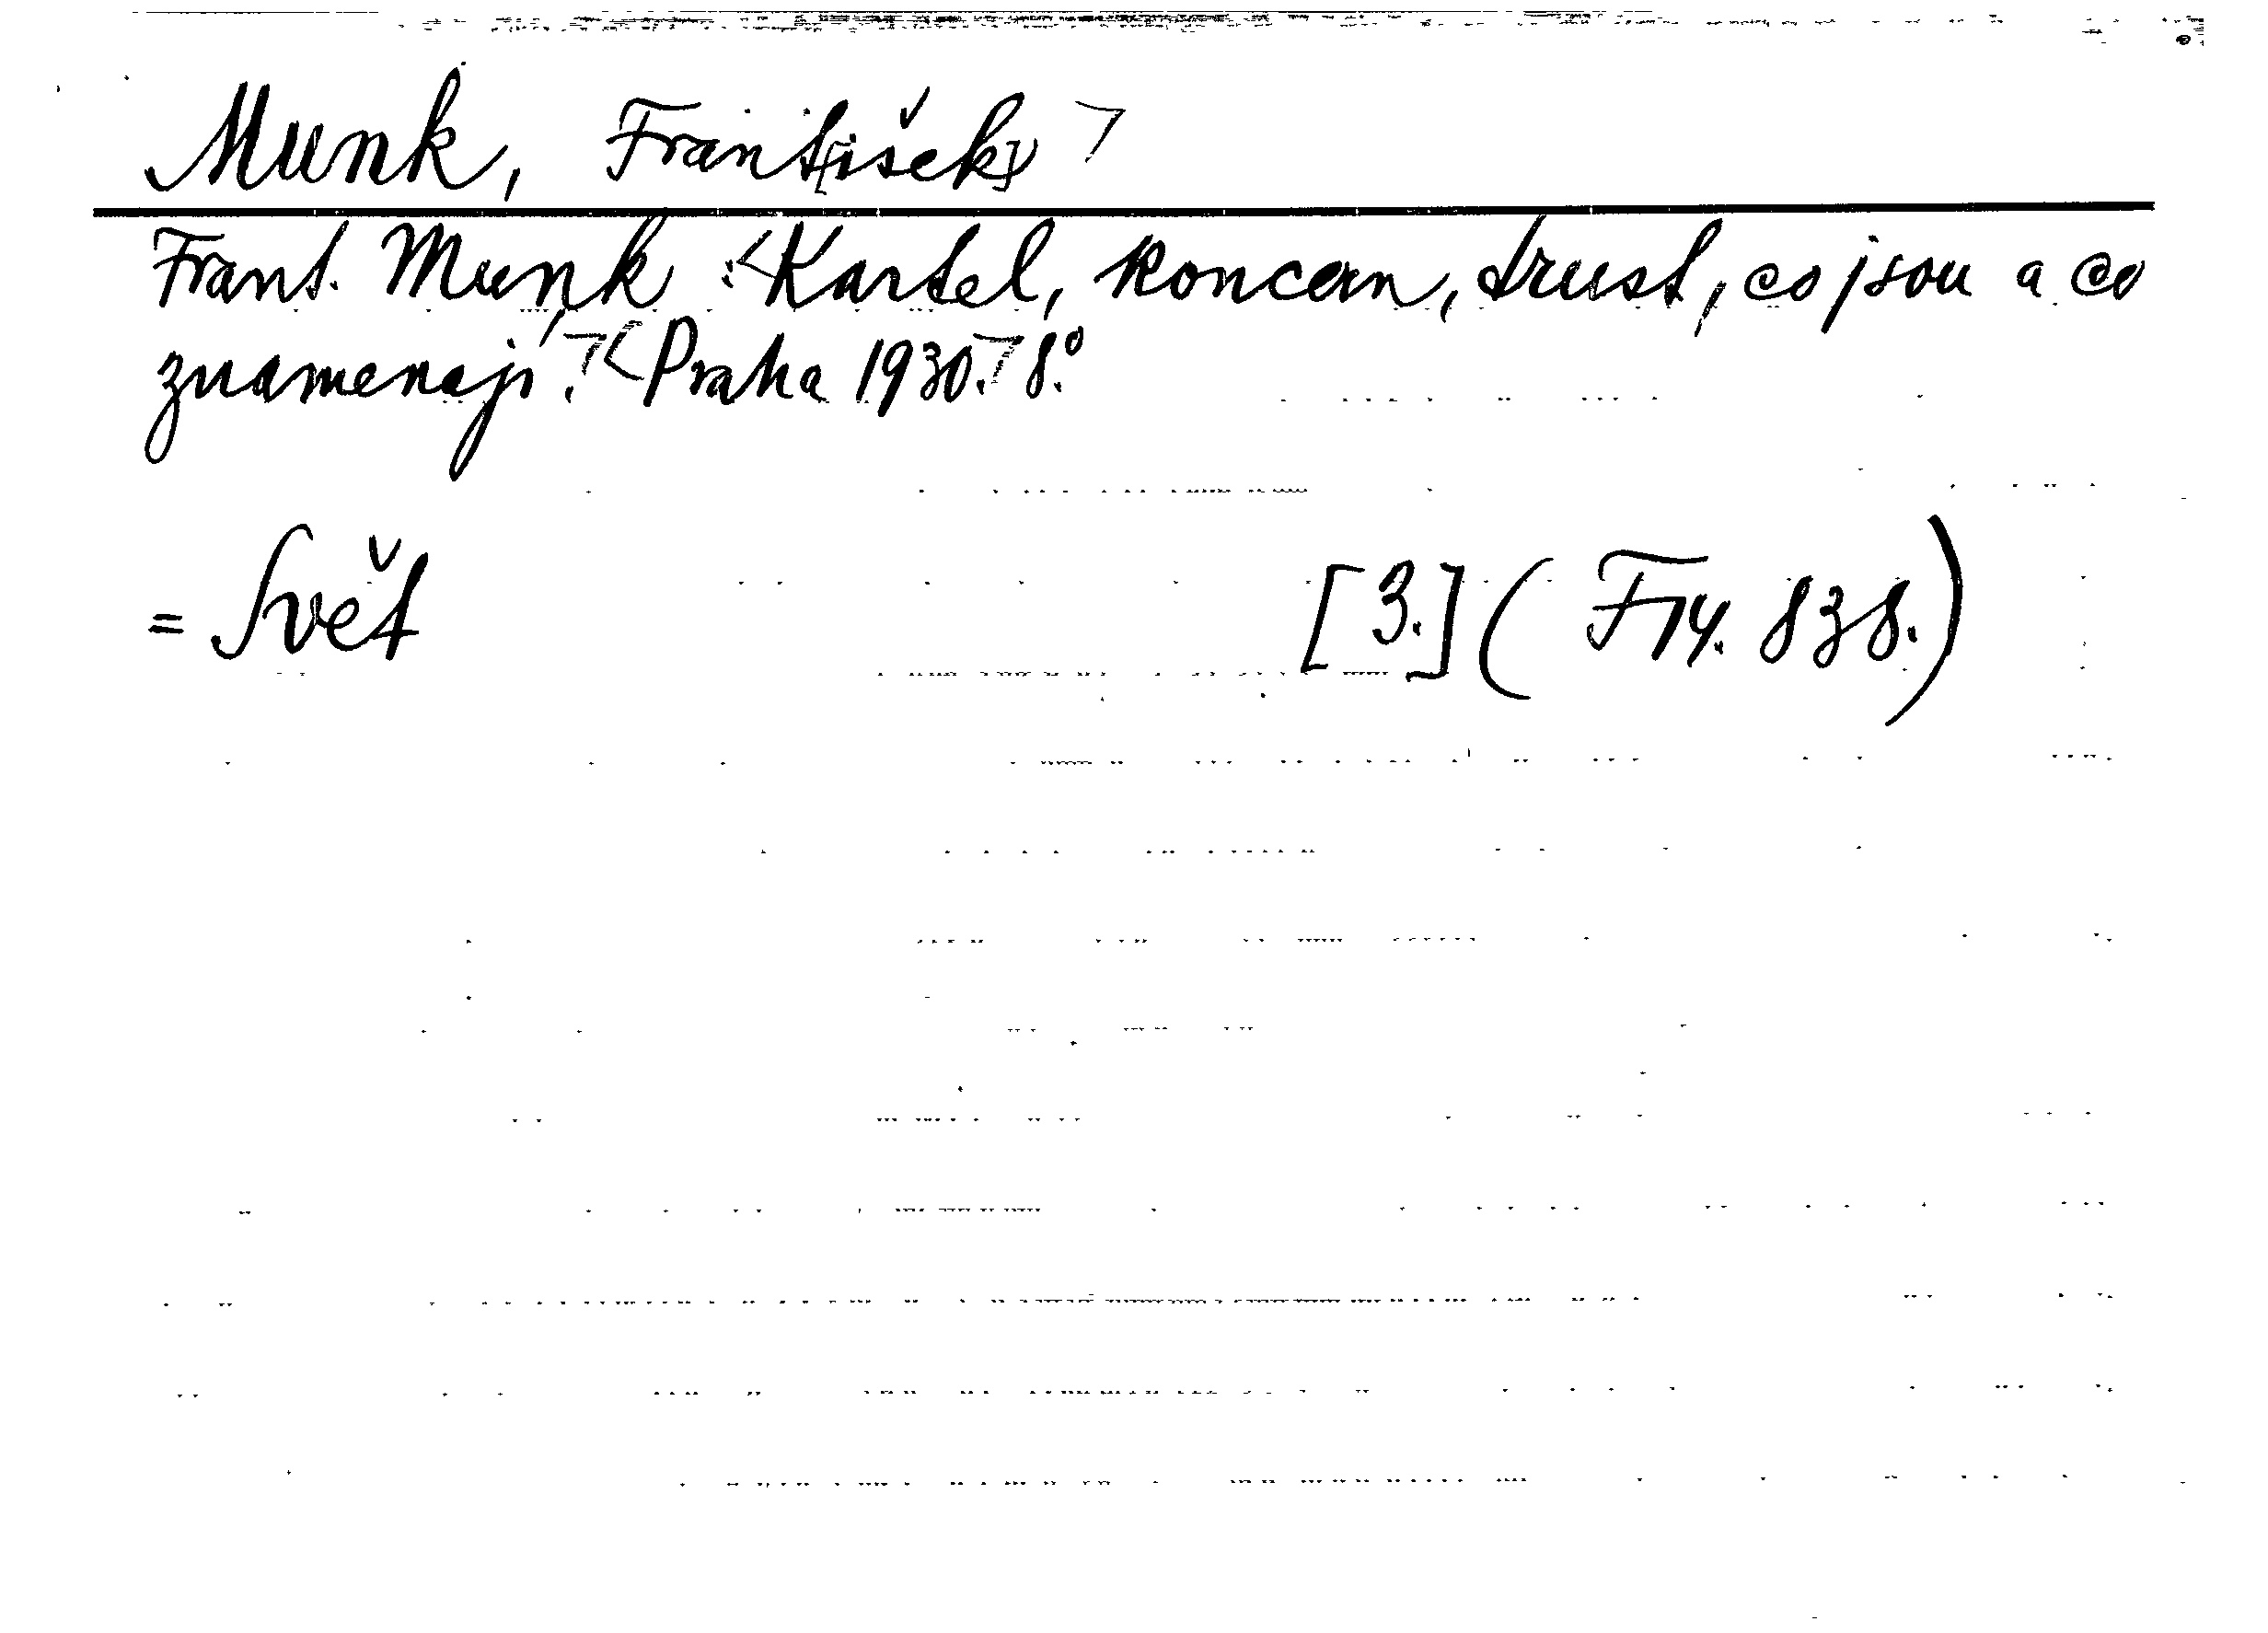 Munk, Frant[išek]>
Frant. Munk :<Kartel, koncern, trust, co jsou a co
znamenají.><Praha 1930.>8.°
= Svět [3.] (F74. 838.)